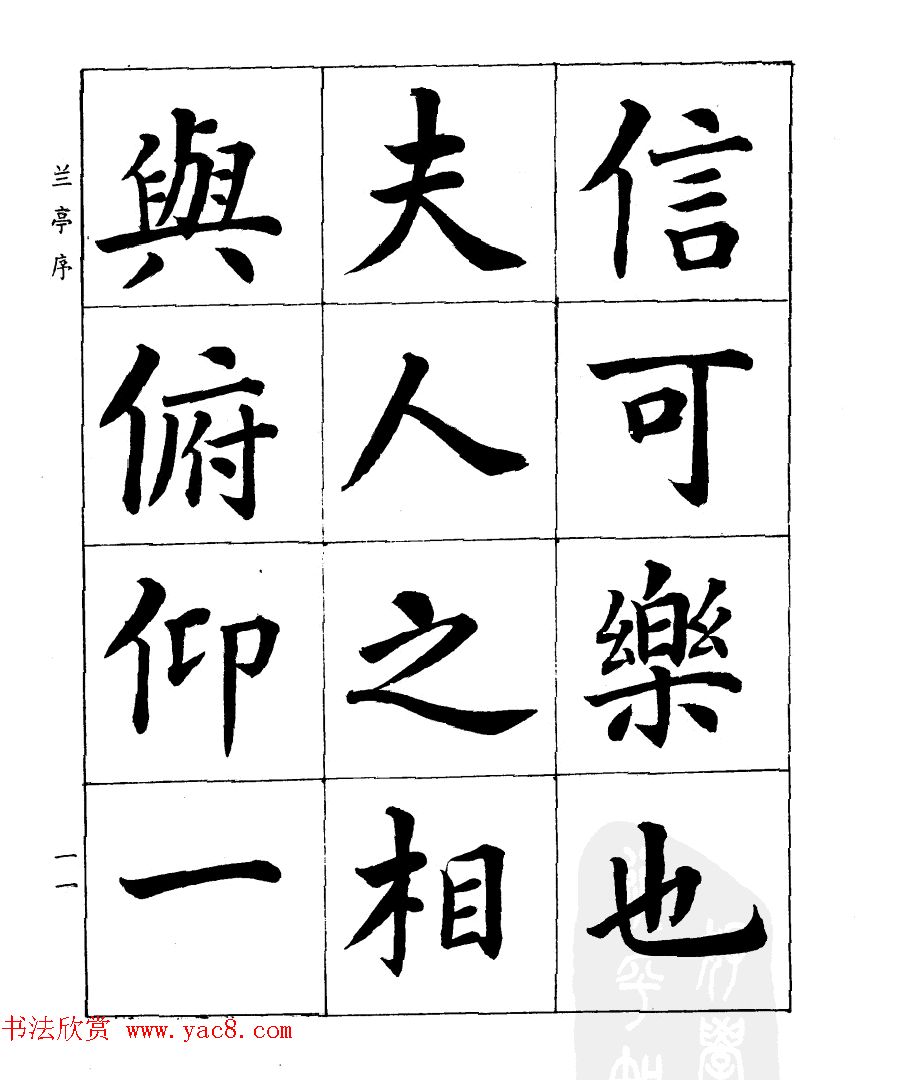 信可樂也
夫人之相
與俯仰一
兰亭序
一一
书法欣赏 www.yac8.com